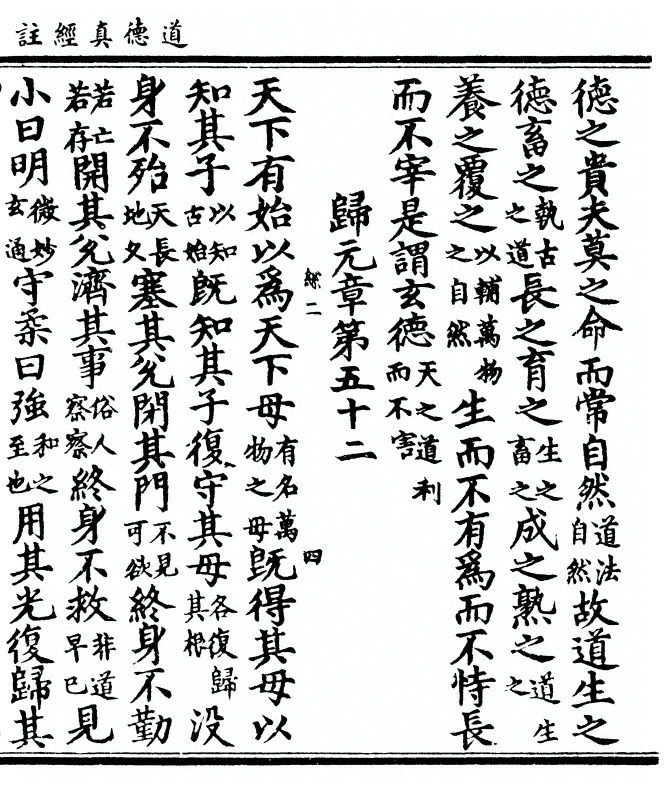 道德真經註
德之貴夫莫之命而常自然道法自然故道生之
德畜之執古之道長之育之生之畜之成之熟之道生之
養之覆之以輔萬物之自然生而不有為而不恃長
而不宰是謂玄德天之道利而不害
歸元章第五十二
二
四
天下有始以為天下母有名萬物之母既得其母以
知其子以知古始既知其子復守其母各復歸其根没
身不殆天長地久塞其兌閉其門不見可欲終身不勤
若亡若存開其兌濟其事俗人察察終身不救非道早已見
小曰明微妙玄通守柔曰強和之至也用其光復歸其